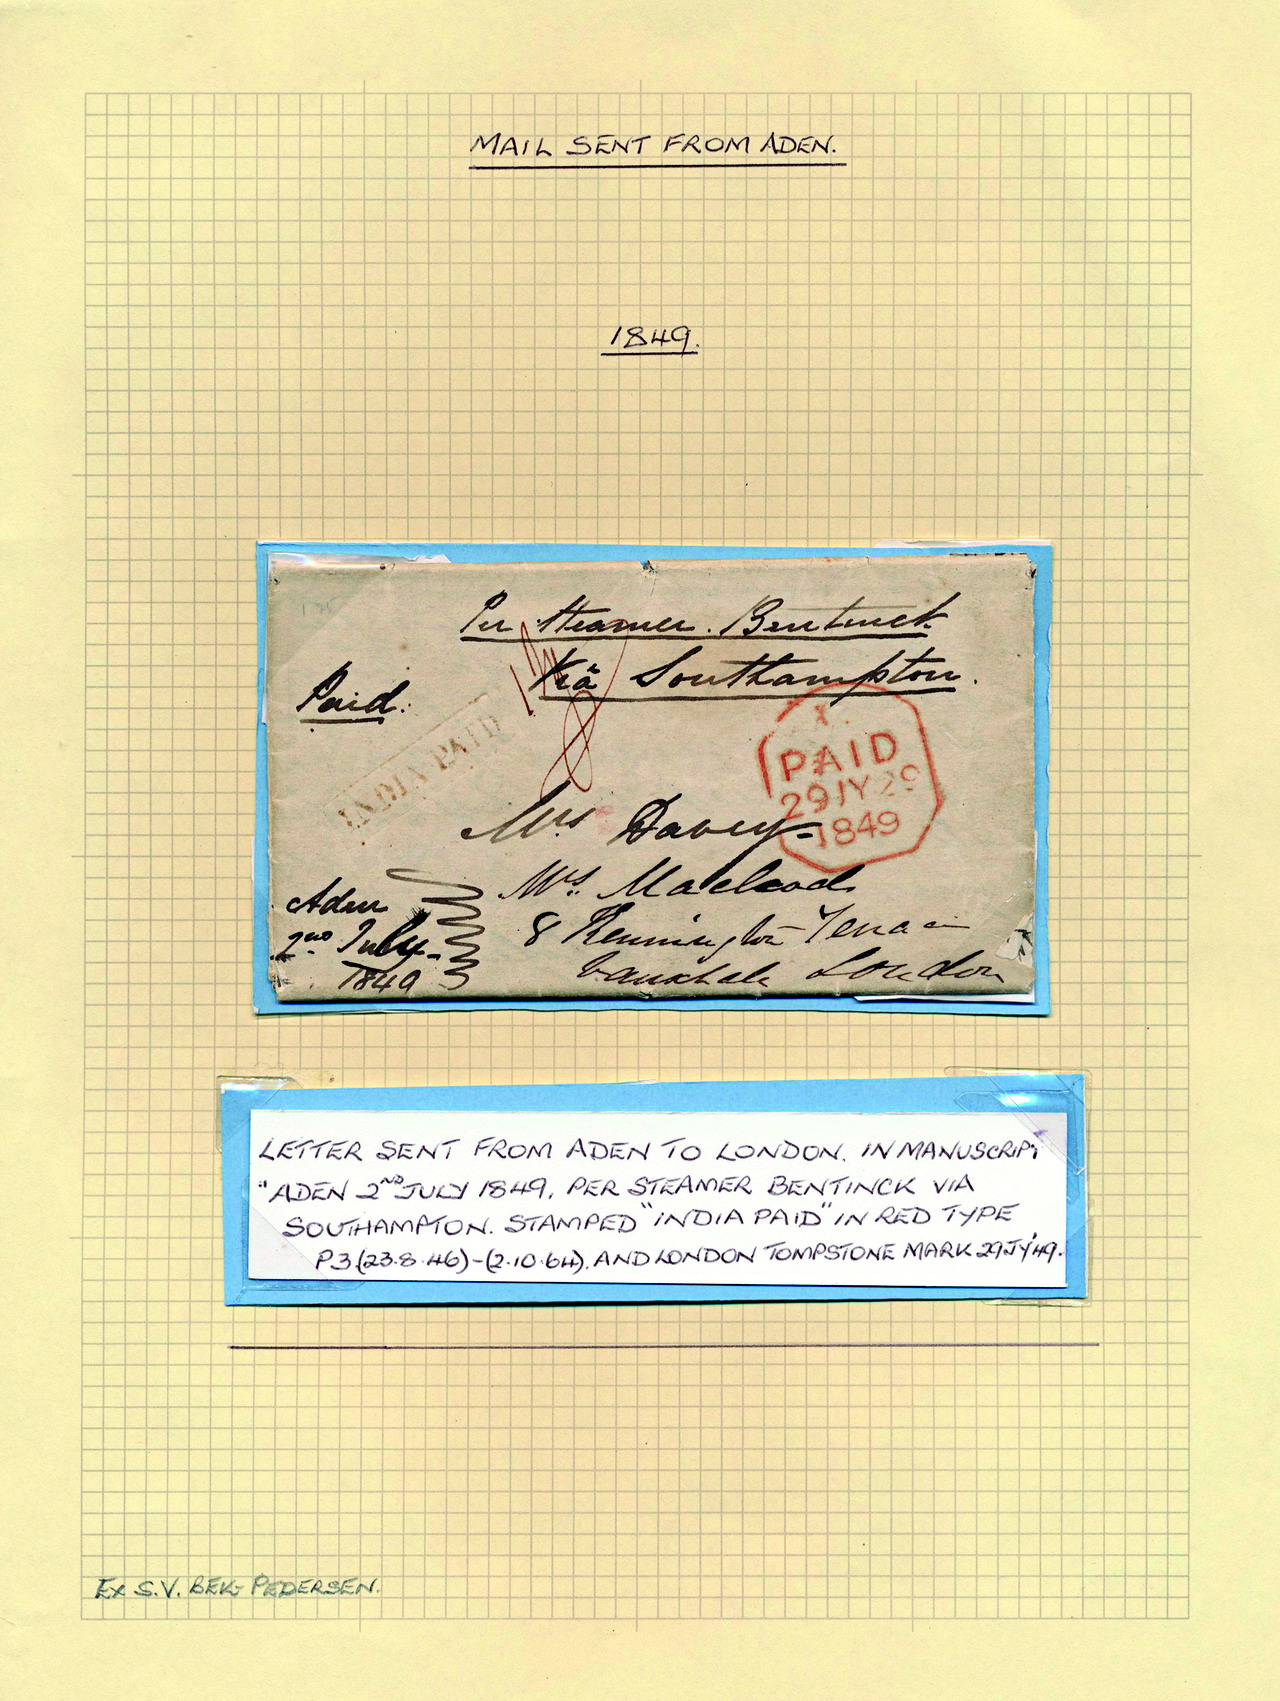 MAIL SENT FROM ADEN.
1849.
Per Steamer. Bentinck
Viâ Southampton.
Paid.
INDIA PAID
PAID
29 JY 29
1849
Mrs Davey
Mrs. Macleod
8 Kennington Terrace
Vauxhall London
Aden
2nd July
1849
LETTER SENT FROM ADEN TO LONDON. IN MANUSCRIPT
"ADEN 2ND JULY 1849, PER STEAMER BENTINCK VIA
SOUTHAMPTON. STAMPED "INDIA PAID" IN RED TYPE
P3.(23.8.46)-(2.10.64). AND LONDON TOMPSTONE MARK 29JY'49.
EX S.V. BEK-PEDERSEN.